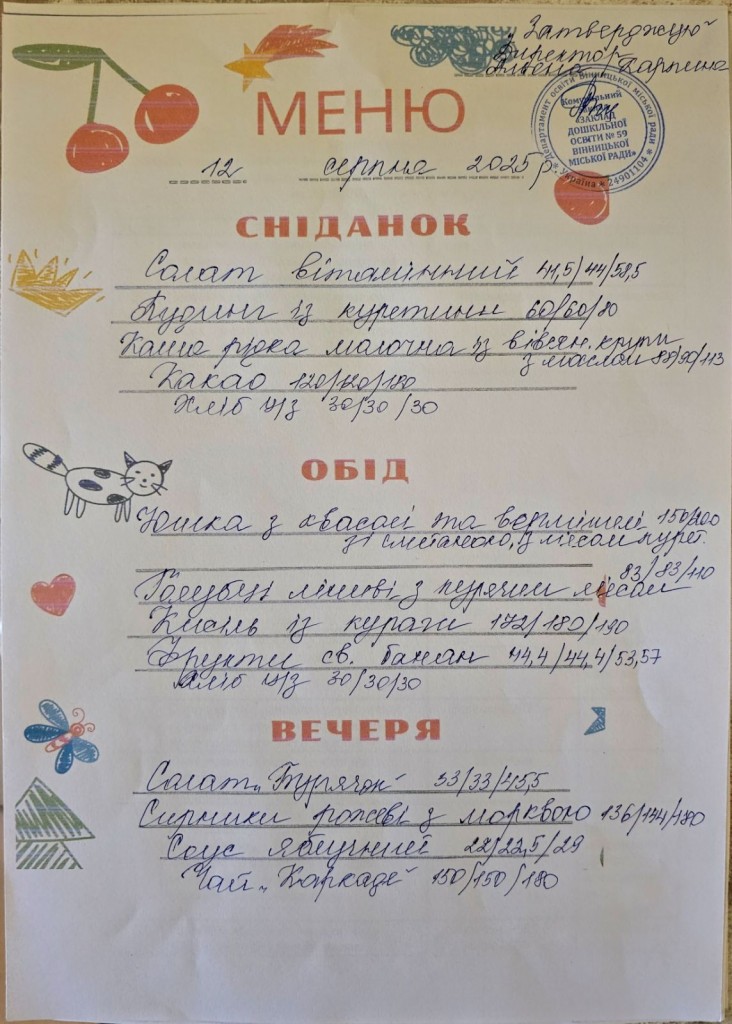 Затверджую
Директор
МЕНЮ
Комунальний
"ЗАКЛАД
ДОШКІЛЬНОЇ
ОСВІТИ № 59
ВІННИЦЬКОЇ
МІСЬКОЇ РАДИ"
Департамент освіти Вінницької міської ради * Україна * 24901104 *
12 серпня 2025 р.
СНІДАНОК
Салат вітамінний 41,5/44/58,5
Пудинг із курятини 60/60/80
Каша рідка молочна із вівсян. крупи
з маслом 88/90/113
Какао 120/120/180
Хліб ц/з 30/30/30
ОБІД
Юшка з квасолі та вермішелі 150/200
зі сметаною, з мясом курят.
83/83/110
Голубці ліниві з курячим мясом
Кисіль із кураги 172/180/190
Фрукти св. банан 44,4/44,4/53,57
Хліб ц/з 30/30/30
ВЕЧЕРЯ
Салат „Бурячок" 33/33/45,5
Сирники рожеві з морквою 136/144/180
Соус яблучний 22/22,5/29
Чай „Каркаде" 150/150/180